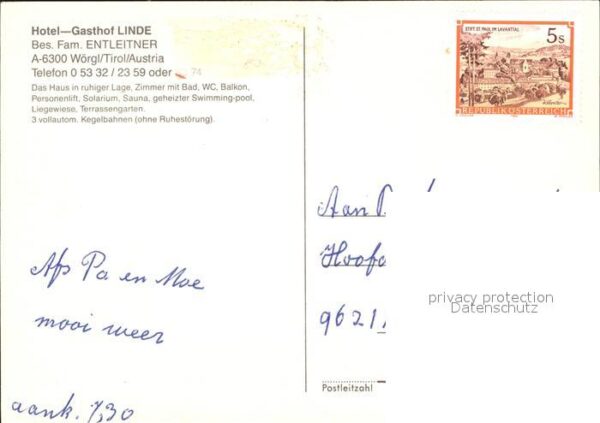 Hotel—Gasthof LINDE
Bes. Fam. ENTLEITNER
A-6300 Wörgl/Tirol/Austria
Telefon 0 53 32 / 23 59 oder 74
Das Haus in ruhiger Lage, Zimmer mit Bad, WC, Balkon,
Personenlift, Solarium, Sauna, geheizter Swimming-pool,
Liegewiese, Terrassengarten.
3 vollautom. Kegelbahnen (ohne Ruhestörung).
STIFT ST. PAUL IM LAVANTTAL
5s
REPUBLIK ÖSTERREICH
Aan
Hoofd
9621
privacy protection
Datenschutz
Postleitzahl
Afs Pa en Moe
mooi weer
aank. 7,30